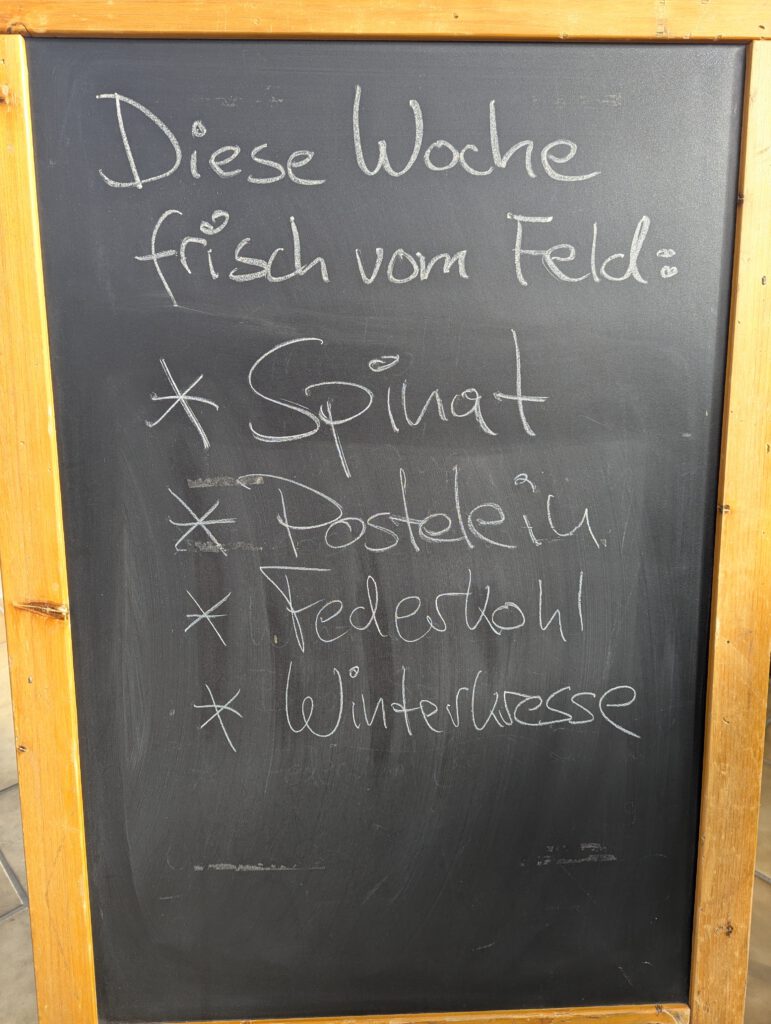 Diese Woche
frisch vom Feld:
* Spinat
* Postelein
* Federkohl
* Winterkresse